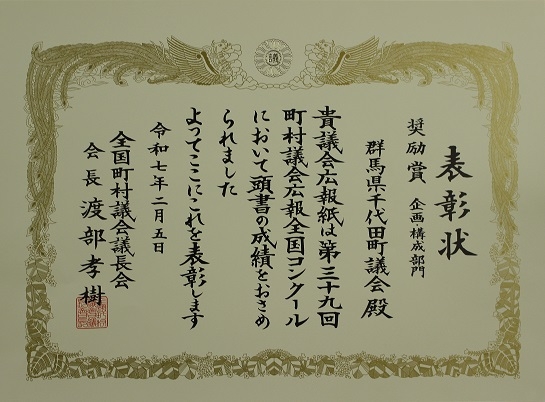 議
表彰状
奨励賞 企画構成部門
群馬県千代田町議会 殿
貴議会広報紙は第三十九回
町村議会広報全国コンクール
において頭書の成績をおさめ
られました
よってここにこれを表彰します
令和七年二月五日
全国町村議会議長会
会長 渡部孝樹